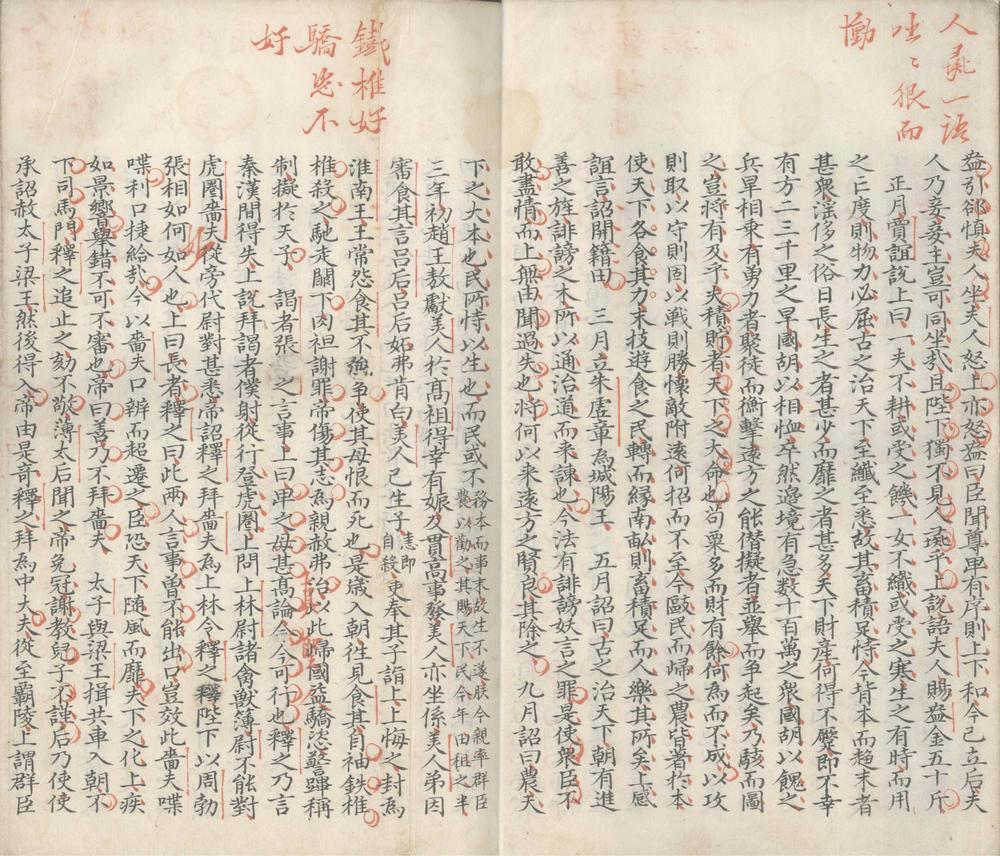 人彘一語
〻很而
慟
盎引郤慎夫人坐夫人怒上亦怒盎曰臣聞尊卑有序則上下和今已立后夫
人乃妾妾主豈可同坐㢤且陛下獨不見人彘乎上説語夫人賜盎金五十斤
正月賈誼說上曰一夫不耕或受之饑一女不織或受之寒生之有時而用
之亡度則物力必屈古之治天下至纖至悉故其畜積足恃今背本而趨末者
甚衆淫侈之俗日長生之者甚少而靡之者甚多天下財產何得不蹷即不幸
有方二三千里之旱國胡以相恤卒然邊境有急数十百萬之衆國胡以餽之
兵旱相乗有勇力者聚徒而衡擊遠方之能僭擬者並舉而争起矣乃駭而圖
之豈將有及乎夫積貯者天下之大命也苟粟多而財有餘何為而不成以攻
則取以守則固以戰則勝懷敵附遠何招而不至今敺民而歸之農皆著於本
使天下各食其力末技遊食之民轉而緣南畝則畜積足而人樂其所矣上感
誼言詔開籍田 三月立朱虛章為城陽王 五月詔曰古之治天下朝有進
善之旌誹謗之木所以通治道而来諫也今法有誹謗妖言之罪是使衆臣不
敢盡情而上無由聞過失也將何以来遠方之賢良其除之 九月詔曰農夫
鐵椎好
驕恣不
好
下之大本也民所恃以生也而民或不務本而事末故生不遂朕今親率群臣
農以勸之其賜天下民今年田租之半
三年初趙王敖獻美人於髙祖得幸有娠及貫高事發美人亦坐係美人弟因
審食其言吕后吕后妬弗肯白美人已生子恚即自殺吏奉其子詣上上悔之封為
淮南王王常怨食其不強争使其母恨而死也是歳入朝往見食其自袖鉄椎
椎殺之馳走闕下肉袒謝罪帝傷其志為親赦弗治以此歸國益驕恣警蹕稱
制擬於天子 謁者張 之言事上曰卑之毋甚髙論令今可行也釋之乃言
秦漢間得失上說拜謁者僕射從行登虎圈上問上林尉諸禽獸簿尉不能對
虎圈嗇夫從旁代尉對甚悉帝詔釋之拜嗇夫為上林令釋之釋陛下以周勃
張相如何如人也上曰長者釋之曰此兩人言事曾不能出口豈效此嗇夫喋
喋利口捷給㢤今以嗇夫口辨而超遷之臣恐天下随風而靡夫下之化上疾
如景響舉錯不可不審也帝曰善乃不拜嗇夫 太子與梁王揖共車入朝不
下司馬門釋之追止之劾不敬薄太后聞之帝免冠謝教兒子不謹后乃使使
承詔赦太子梁王然後得入帝由是竒釋之拜為中大夫從至霸陵上謂群臣